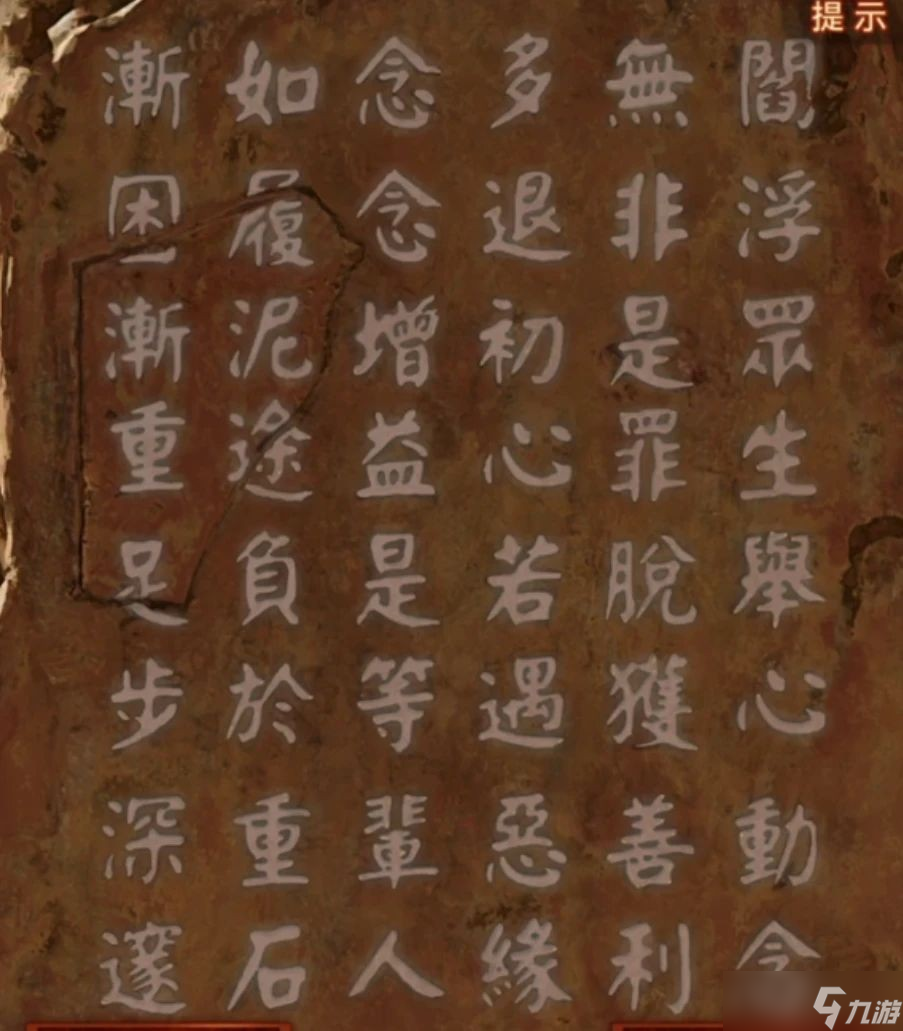 提示
閻浮眾生舉心動
無非是罪脫獲善利
多退初心若遇惡緣
念念增益是等輩人
如履泥途負於重石
漸困漸重足步深邃
九游